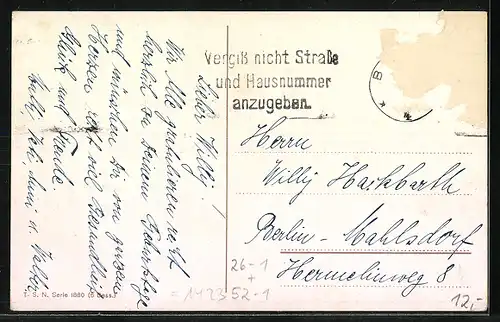 Lieber Willy!
Wir Alle gratulieren recht
herzlich zu deinem Geburtstage
und wünschen dir von ganzem
Herzen recht viel Gesundheit
Glück und Freude
Vergiß nicht Straße
und Hausnummer
anzugeben.
B
Herrn
Willy Hackbarth
Berlin-Mahlsdorf
Hermelinweg 8
26-1
+
T. S. N. Serie 1880 (6 Dess.)
12,-